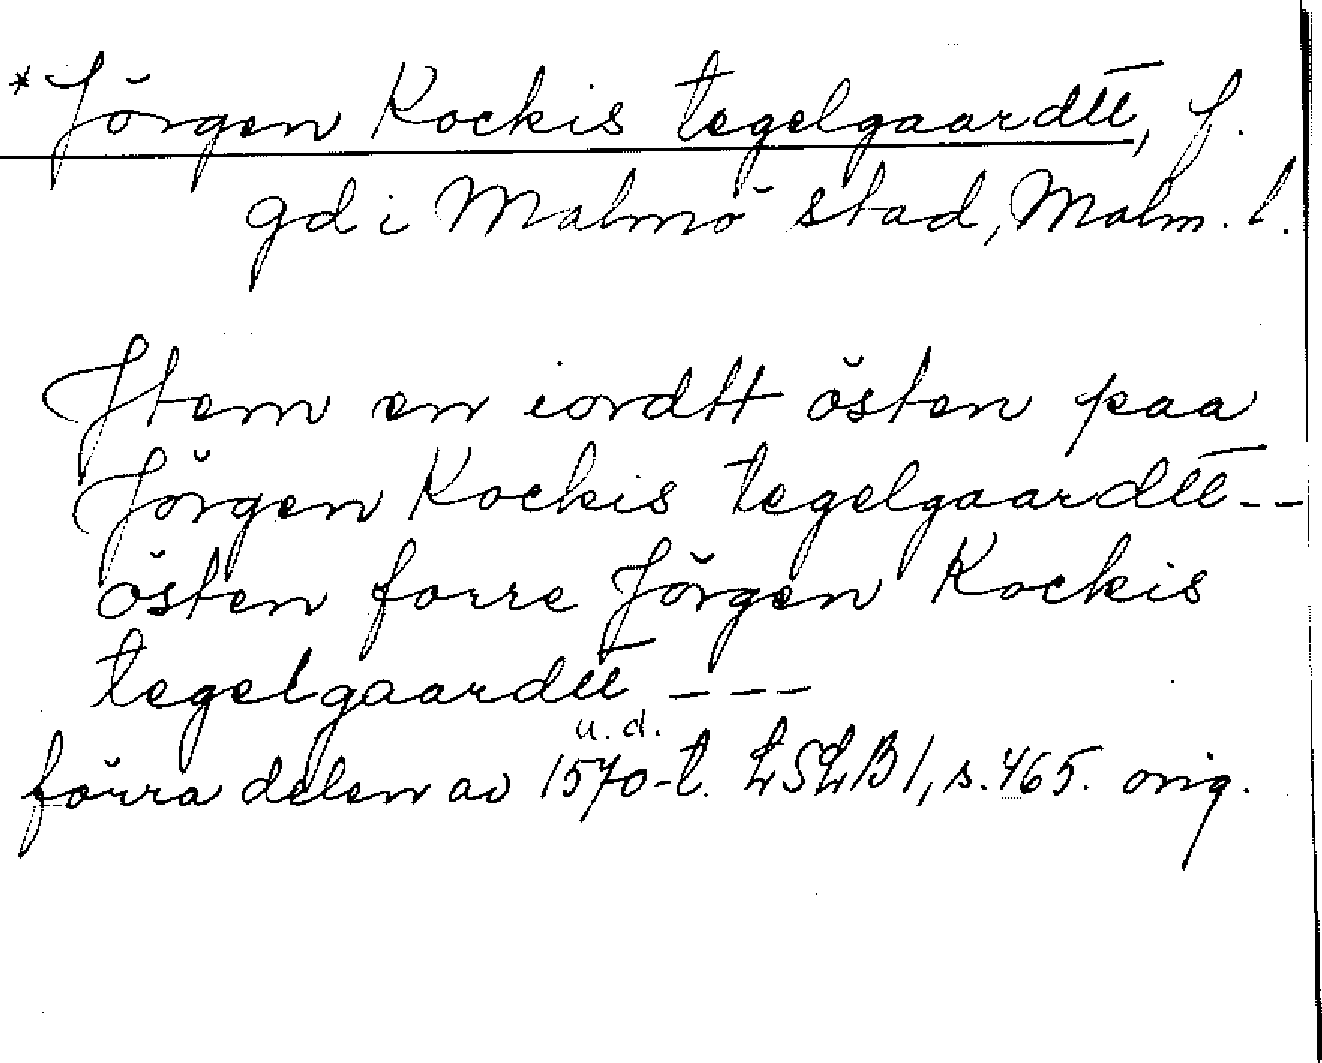 *Jörgen Kockis tegelgaardtt, f.
gd i Malmö stad, Malm. l.
Jtem en iordtt östen paa
Jörgen Kockis tegelgaardtt---
östen forre Jörgen Kockis
tegelgaardtt ---
u.d.
förra delen av 1570-t. LSLB1, s.465. orig.